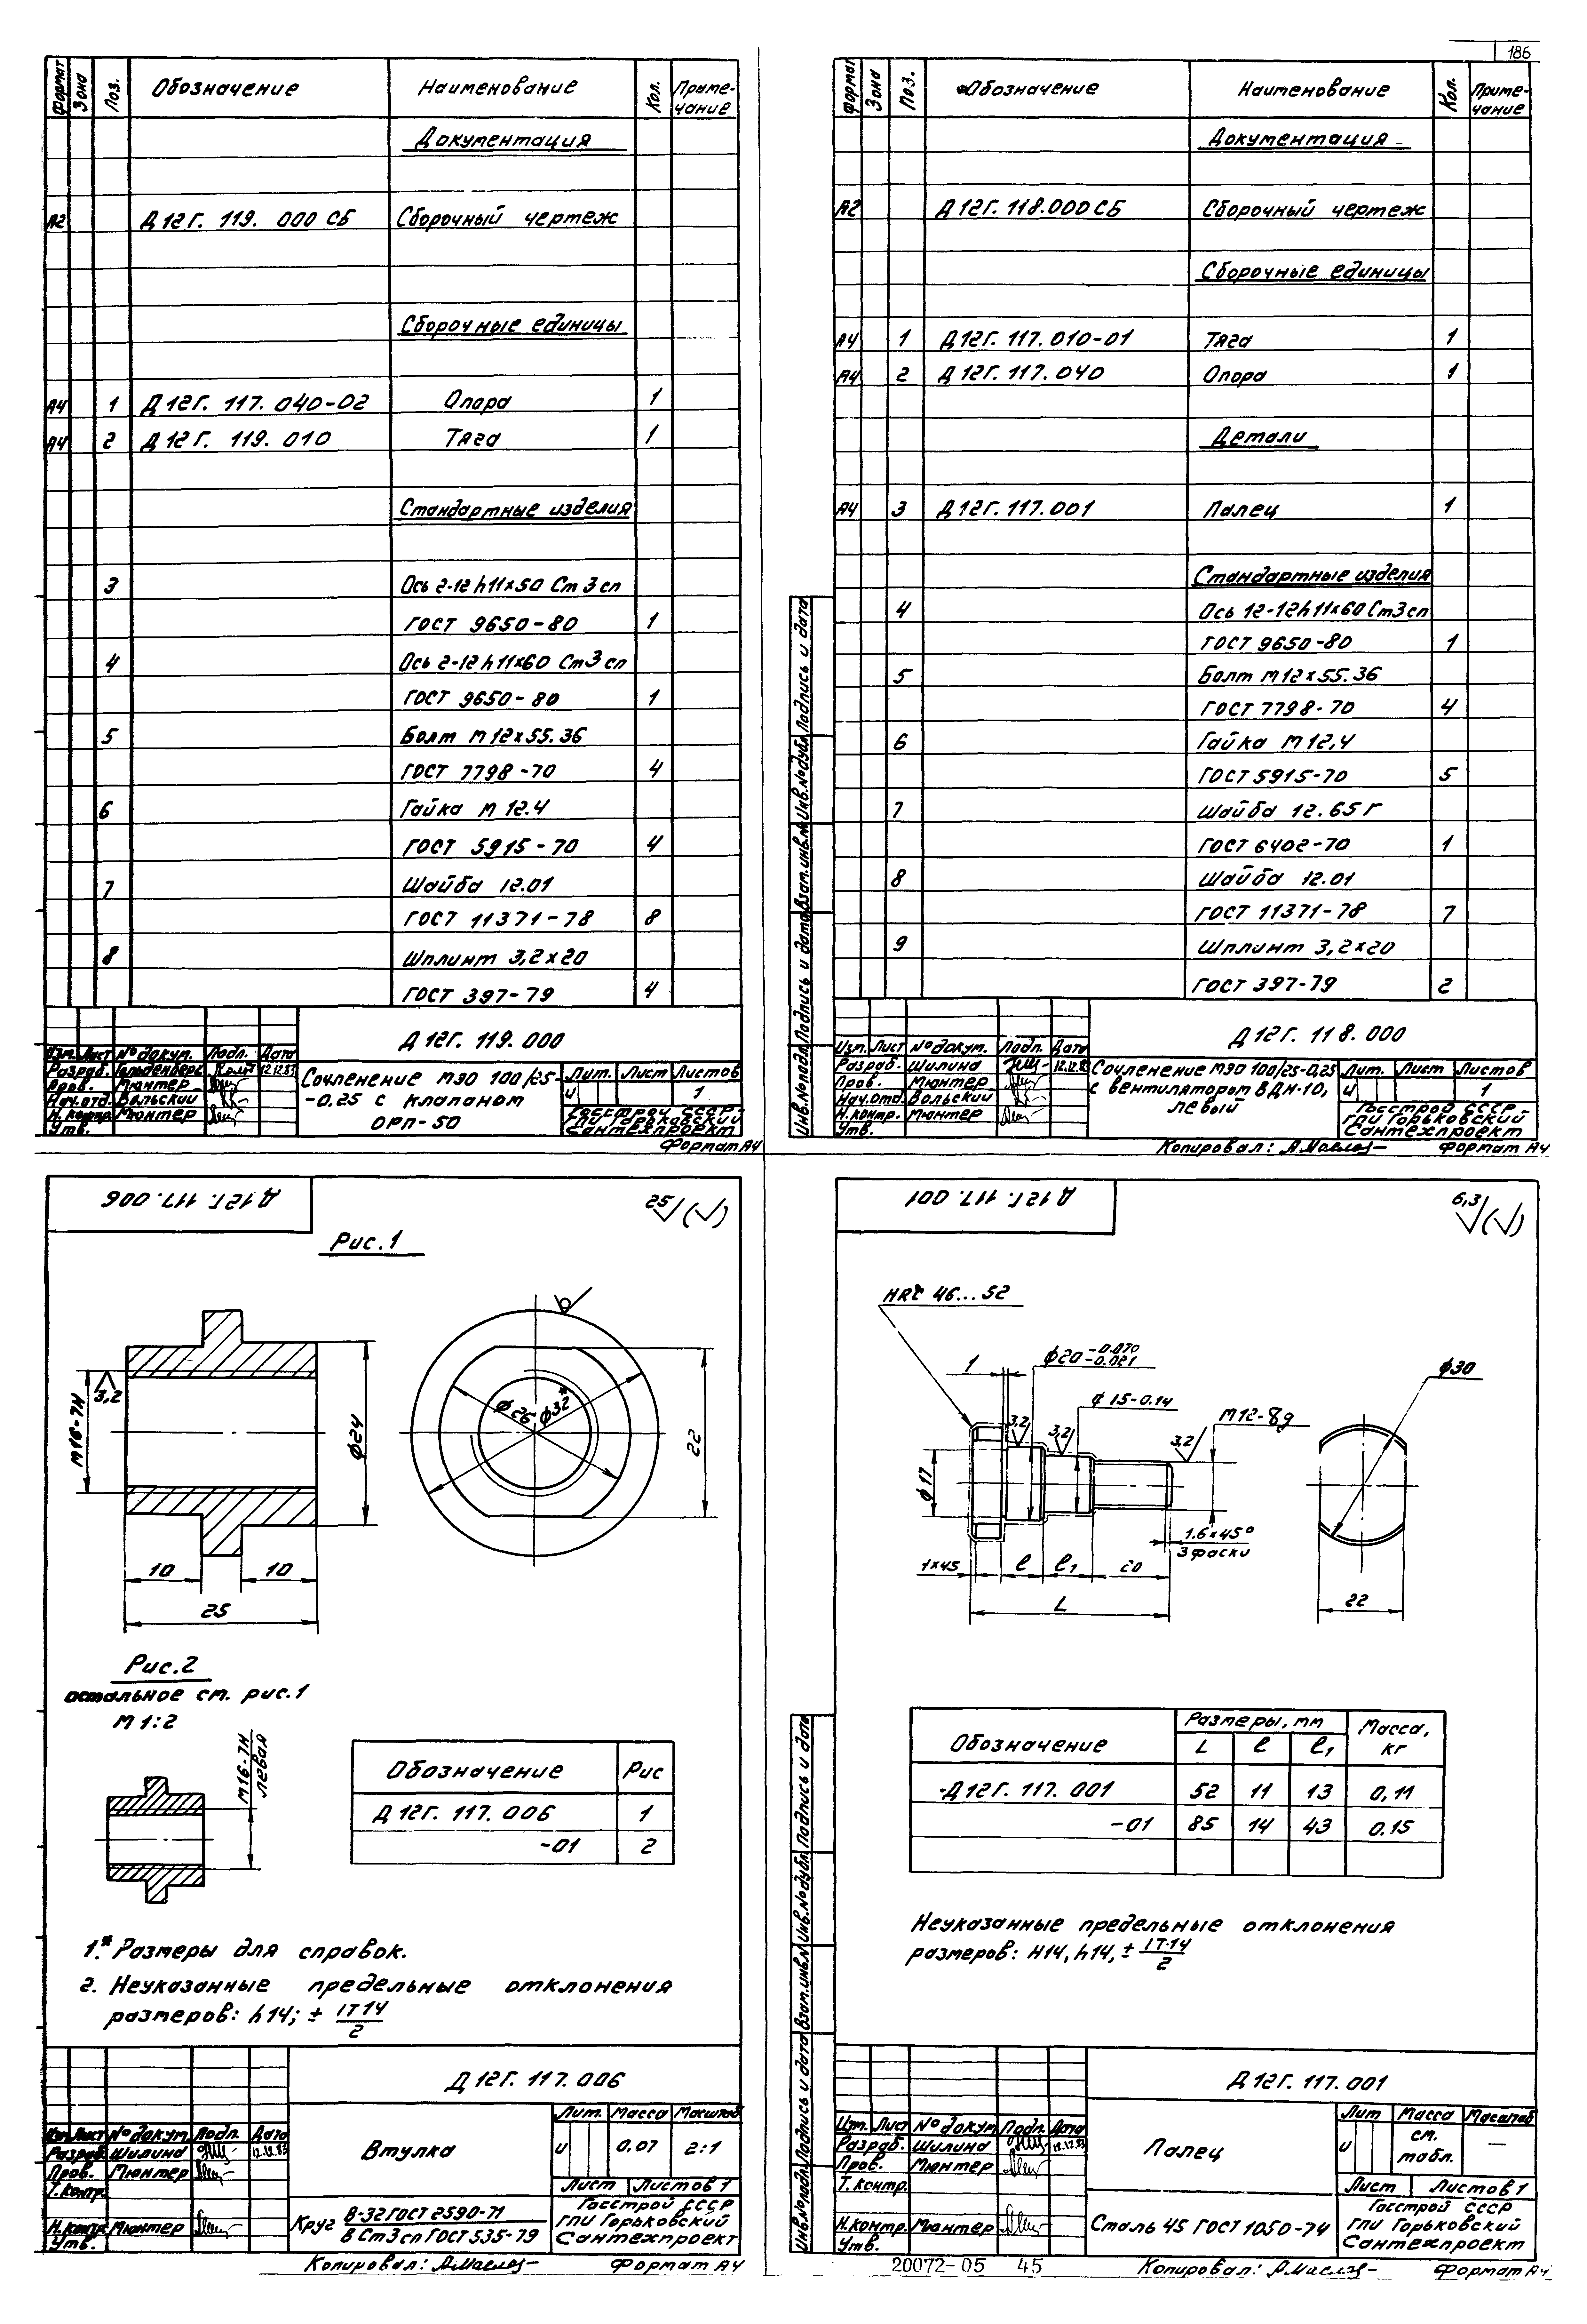 186
Формат Зона Поз. Обозначение Наименование Кол. Приме-
чание
Документация
А2 Д12Г. 119. 000 СБ Сборочный чертеж
Сборочные единицы
А4 1 Д12Г. 117. 040-02 Опора 1
А4 2 Д12Г. 119. 010 Тяга 1
Стандартные изделия
3 Ось 2-12h11×50 Ст3сп
ГОСТ 9650-80 1
4 Ось 2-12h11×60 Ст3сп
ГОСТ 9650-80 1
5 Болт М12×55.36
ГОСТ 7798-70 4
6 Гайка М12.4
ГОСТ 5915-70 4
7 Шайба 12.01
ГОСТ 11371-78 8
8 Шплинт 3,2×20
ГОСТ 397-79 4
Д12Г. 119. 000
Изм. Лист № докум. Подп. Дата
Разраб. 12.12.83
Пров. Мюнтер
Нач.отд. Вольский
Н. контр. Мюнтер
Утв.
Сочленение МЭО 100/25-
-0,25 с клапаном
ОРП-50
Лит. Лист Листов
и 1
Госстрой СССР
ГПИ Горьковский
Сантехпроект
Формат А4
Формат Зона Поз. Обозначение Наименование Кол. Приме-
чание
Документация
А2 Д12Г. 118.000 СБ Сборочный чертеж
Сборочные единицы
А4 1 Д12Г. 117. 010-01 Тяга 1
А4 2 Д12Г. 117. 040 Опора 1
Детали
А4 3 Д12Г. 117.001 Палец 1
Стандартные изделия
4 Ось 12-12h11×60 Ст3сп
ГОСТ 9650-80 1
5 Болт М12×55.36
ГОСТ 7798-70 4
6 Гайка М12,4
ГОСТ 5915-70 5
7 Шайба 12.65Г
ГОСТ 6402-70 1
8 Шайба 12.01
ГОСТ 11371-78 7
9 Шплинт 3,2×20
ГОСТ 397-79 2
Инв.№подл. Подпись и дата Взам.инв.№ Инв.№дубл. Подпись и дата
Д12Г. 118. 000
Изм. Лист № докум. Подп. Дата
Разраб. Шилина 12.12.83
Пров. Мюнтер
Нач.отд. Вольский
Н.контр. Мюнтер
Утв.
Сочленение МЭО 100/25-0,25
с вентилятором ВДН-10,
левый
Лит. Лист Листов
и 1
Госстрой СССР
ГПИ Горьковский
Сантехпроект
Копировал: Формат А4
Д12Г. 117. 006
25 (√)
Рис.1
М16-7Н
3,2
ф24
ф26 ф32*
22
10 10
25
Рис.2
остальное см. рис.1
М 1:2
М16-7Н
левая
Обозначение Рис
Д12Г. 117. 006 1
-01 2
1.* Размеры для справок.
2. Неуказанные предельные отклонения
размеров: h14; ± IT14
2
Д12Г. 117. 006
Изм. Лист № докум. Подп. Дата
Разраб. Шилина 12.12.83
Пров. Мюнтер
Т.контр.
Н.контр. Мюнтер
Утв.
Втулка
Лит. Масса Масштаб
и 0.07 2:1
Лист Листов 1
Круг В-32 ГОСТ 2590-71
В Ст3сп ГОСТ 535-79
Госстрой СССР
ГПИ Горьковский
Сантехпроект
Копировал: Формат А4
Д12Г. 117. 001
6,3 (√)
HRC 46...52
1
ф20 -0.070
-0.021
ф15-0.14
М12-8g
ф30
3,2 3,2 3,2
ф17
1.6×45°
3 фаски
1×45 ℓ ℓ1 20
L
22
Обозначение Размеры, мм Масса,
кг
L ℓ ℓ1
Д12Г. 117. 001 52 11 13 0,11
-01 85 14 43 0.15
Неуказанные предельные отклонения
размеров: Н14, h14, ± IT14
2
Инв.№подл. Подпись и дата Взам.инв.№ Инв.№дубл. Подпись и дата
Д12Г. 117.001
Изм. Лист № докум. Подп. Дата
Разраб. Шилина 12.12.83
Пров. Мюнтер
Т.контр.
Н.контр. Мюнтер
Утв.
Палец
Лит Масса Масштаб
и см.
табл. —
Лист Листов 1
Сталь 45 ГОСТ 1050-74
Госстрой СССР
ГПИ Горьковский
Сантехпроект
20072-05 45
Копировал: Формат А4